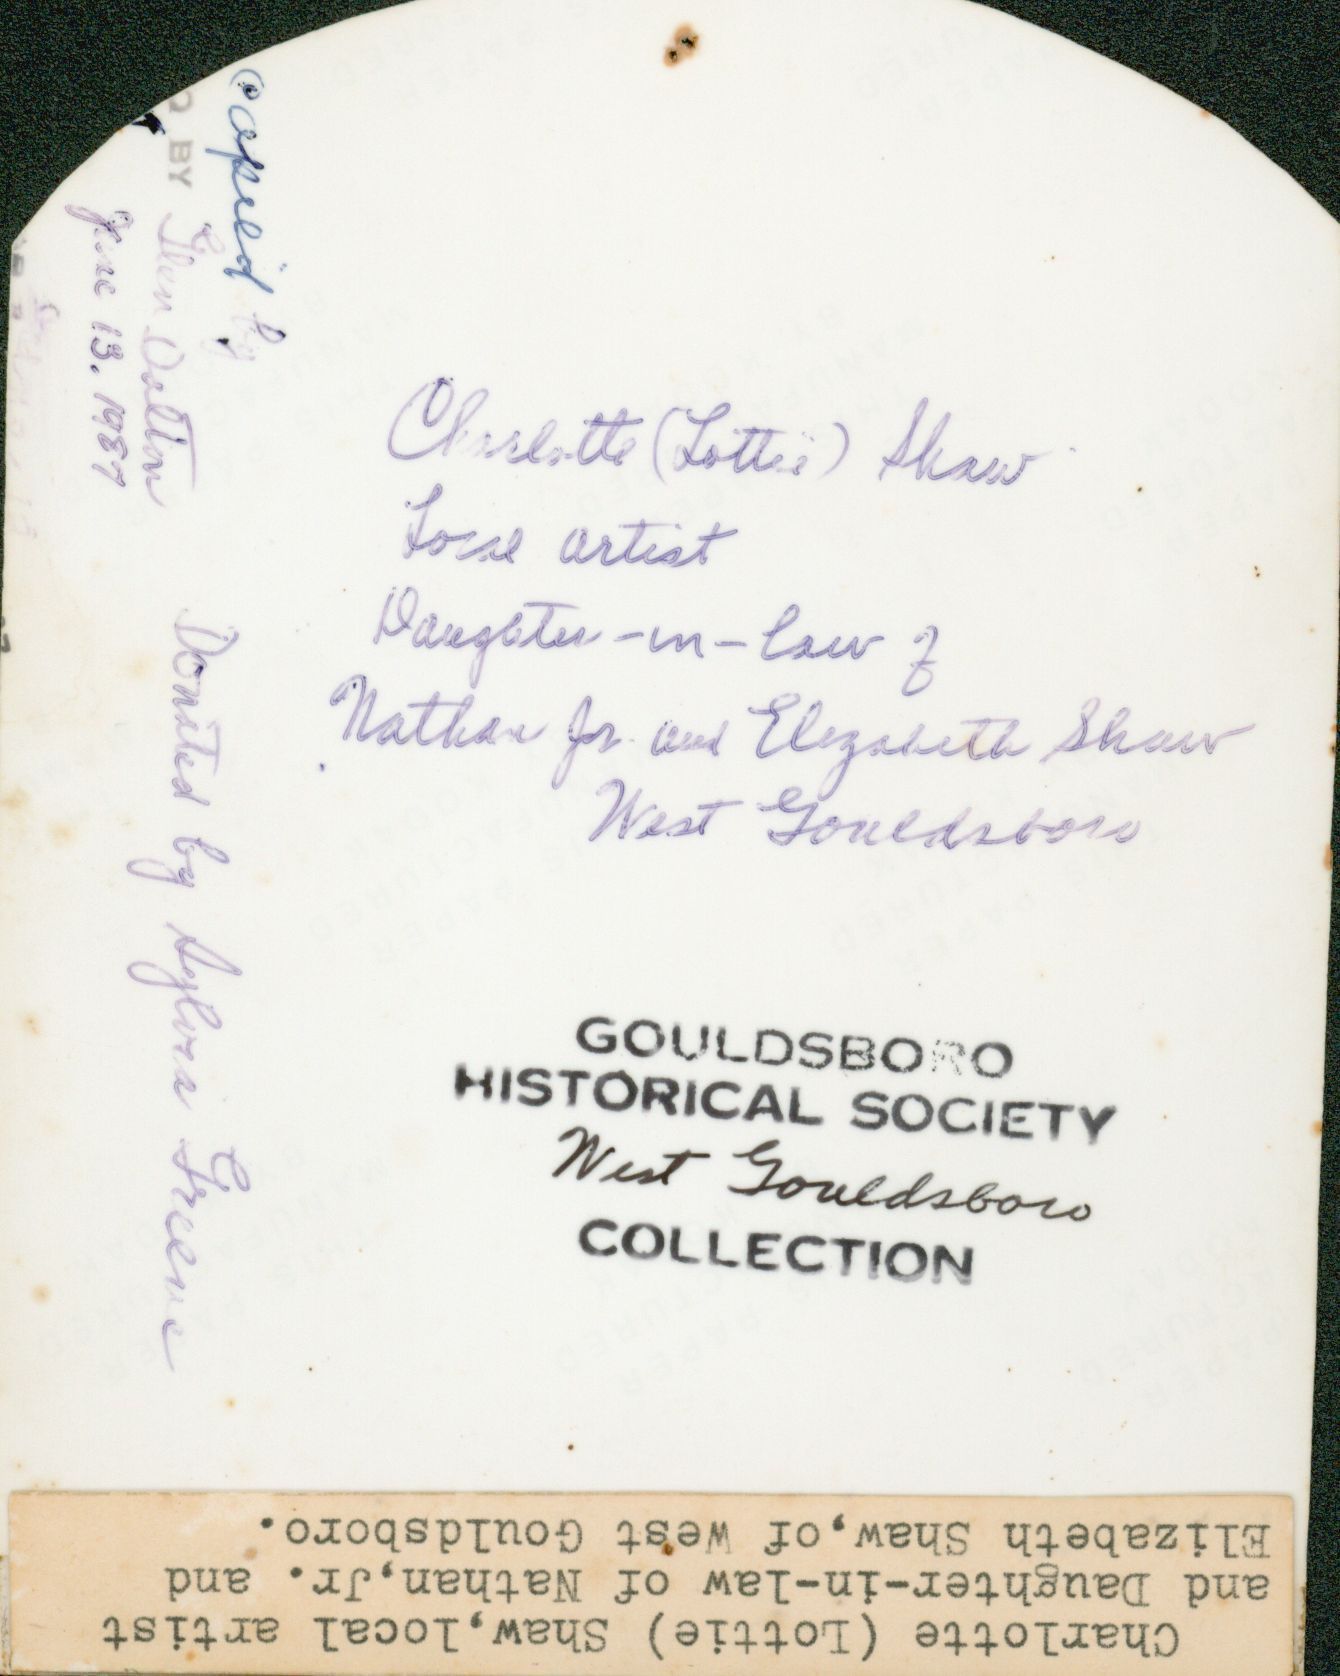 Copied by
BY Glen Dalton
June 13. 1987
Charlotte (Lottie) Shaw
Local artist
Daughter-in-law of
Nathan Jr. and Elizabeth Shaw
West Gouldsboro
Donated by Sylvia Greene
GOULDSBORO
HISTORICAL SOCIETY
West Gouldsboro
COLLECTION
Charlotte (Lottie) Shaw,local artist
and Daughter-in-law of Nathan,Jr. and
Elizabeth Shaw,of West Gouldsboro.